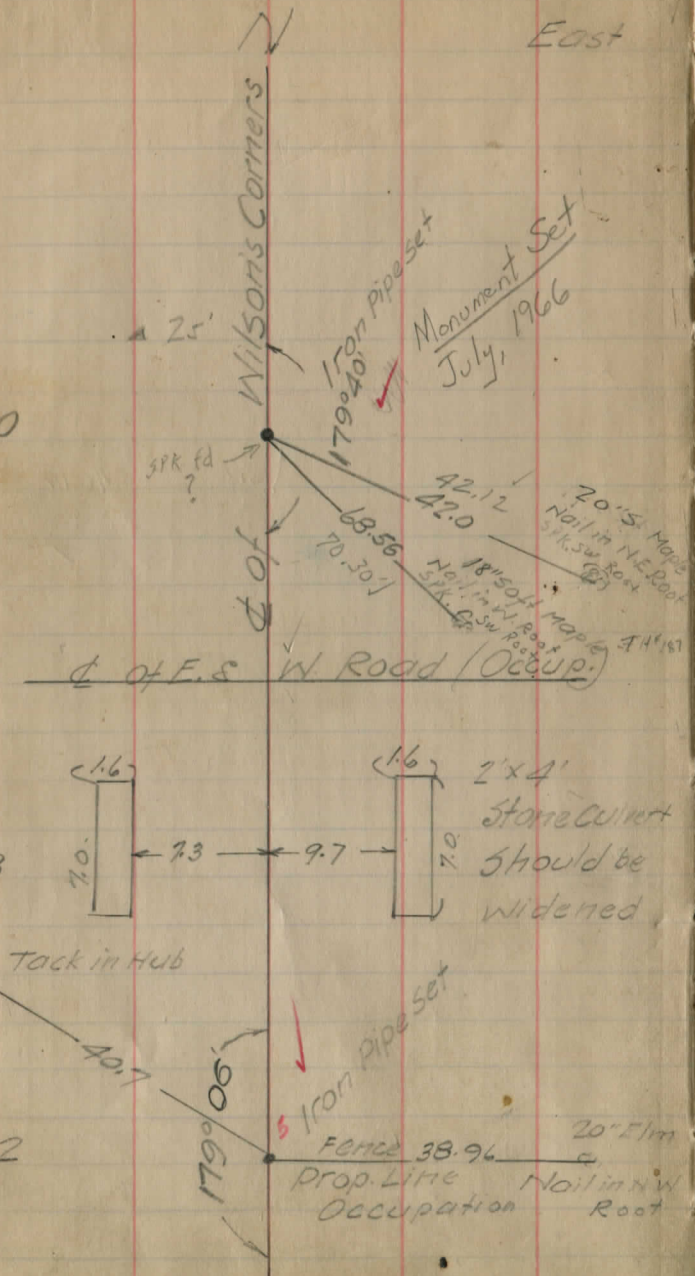 East
Wilson's Corners
Iron Pipe set
179°40'
Monument Set
July, 1966
25'
SPK. fd
?
42.12
42.0
20" S. Maple
Nail in N.E. Root
SPK. SW Root
68.56
70.30'
18" Soft Maple
Nail in W Root
SPK. SW Root
℄ of
℄ of E. & W Road (Occup.)
1.6
1.6
2'x4'
Stone Culvert
Should be
Widened
7.0
7.3
9.7
7.0
Tack in Hub
40.7
179°06'
Iron Pipe set
2
Fence 38.96
Prop. Line
Occupation
20" Elm
Nail in NW
Root